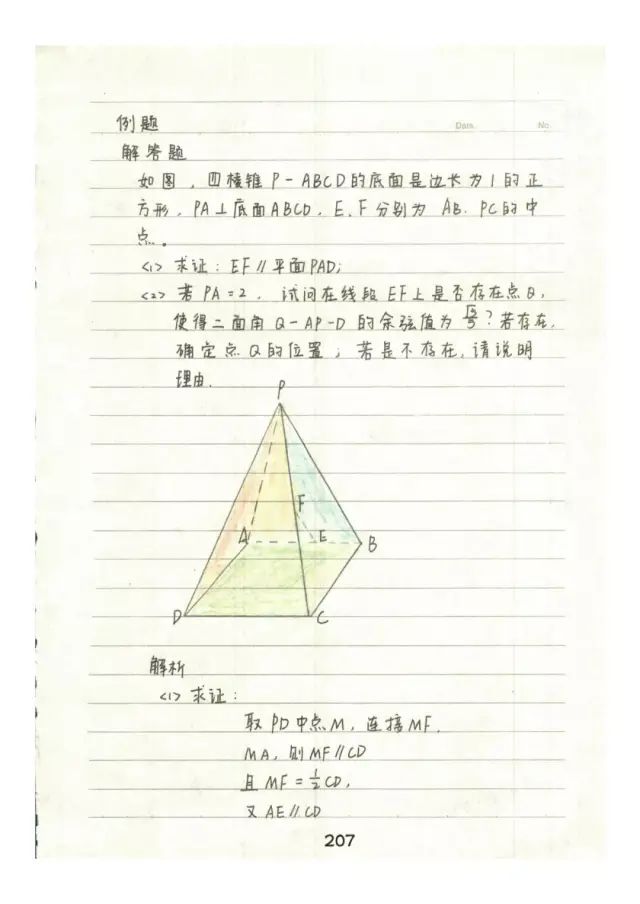 Date. No.
例题
解答题
如图，四棱锥P-ABCD的底面是边长为1的正
方形，PA⊥底面ABCD，E、F分别为AB、PC的中
点。
<1> 求证：EF∥平面PAD；
<2> 若PA=2，试问在线段EF上是否存在点Q，
使得二面角Q-AP-D的余弦值为√5/5？若存在，
确定点Q的位置；若是不存在，请说明
理由．
P
F
A E B
D C
解析
<1> 求证：
取PD中点M，连接MF，
MA，则MF∥CD
且MF=1/2CD，
又AE∥CD
207